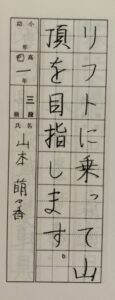 リフトに乗って山
頂を目指します。
幼 小 高 一 年 三 段 級 氏名 山本 萌々香